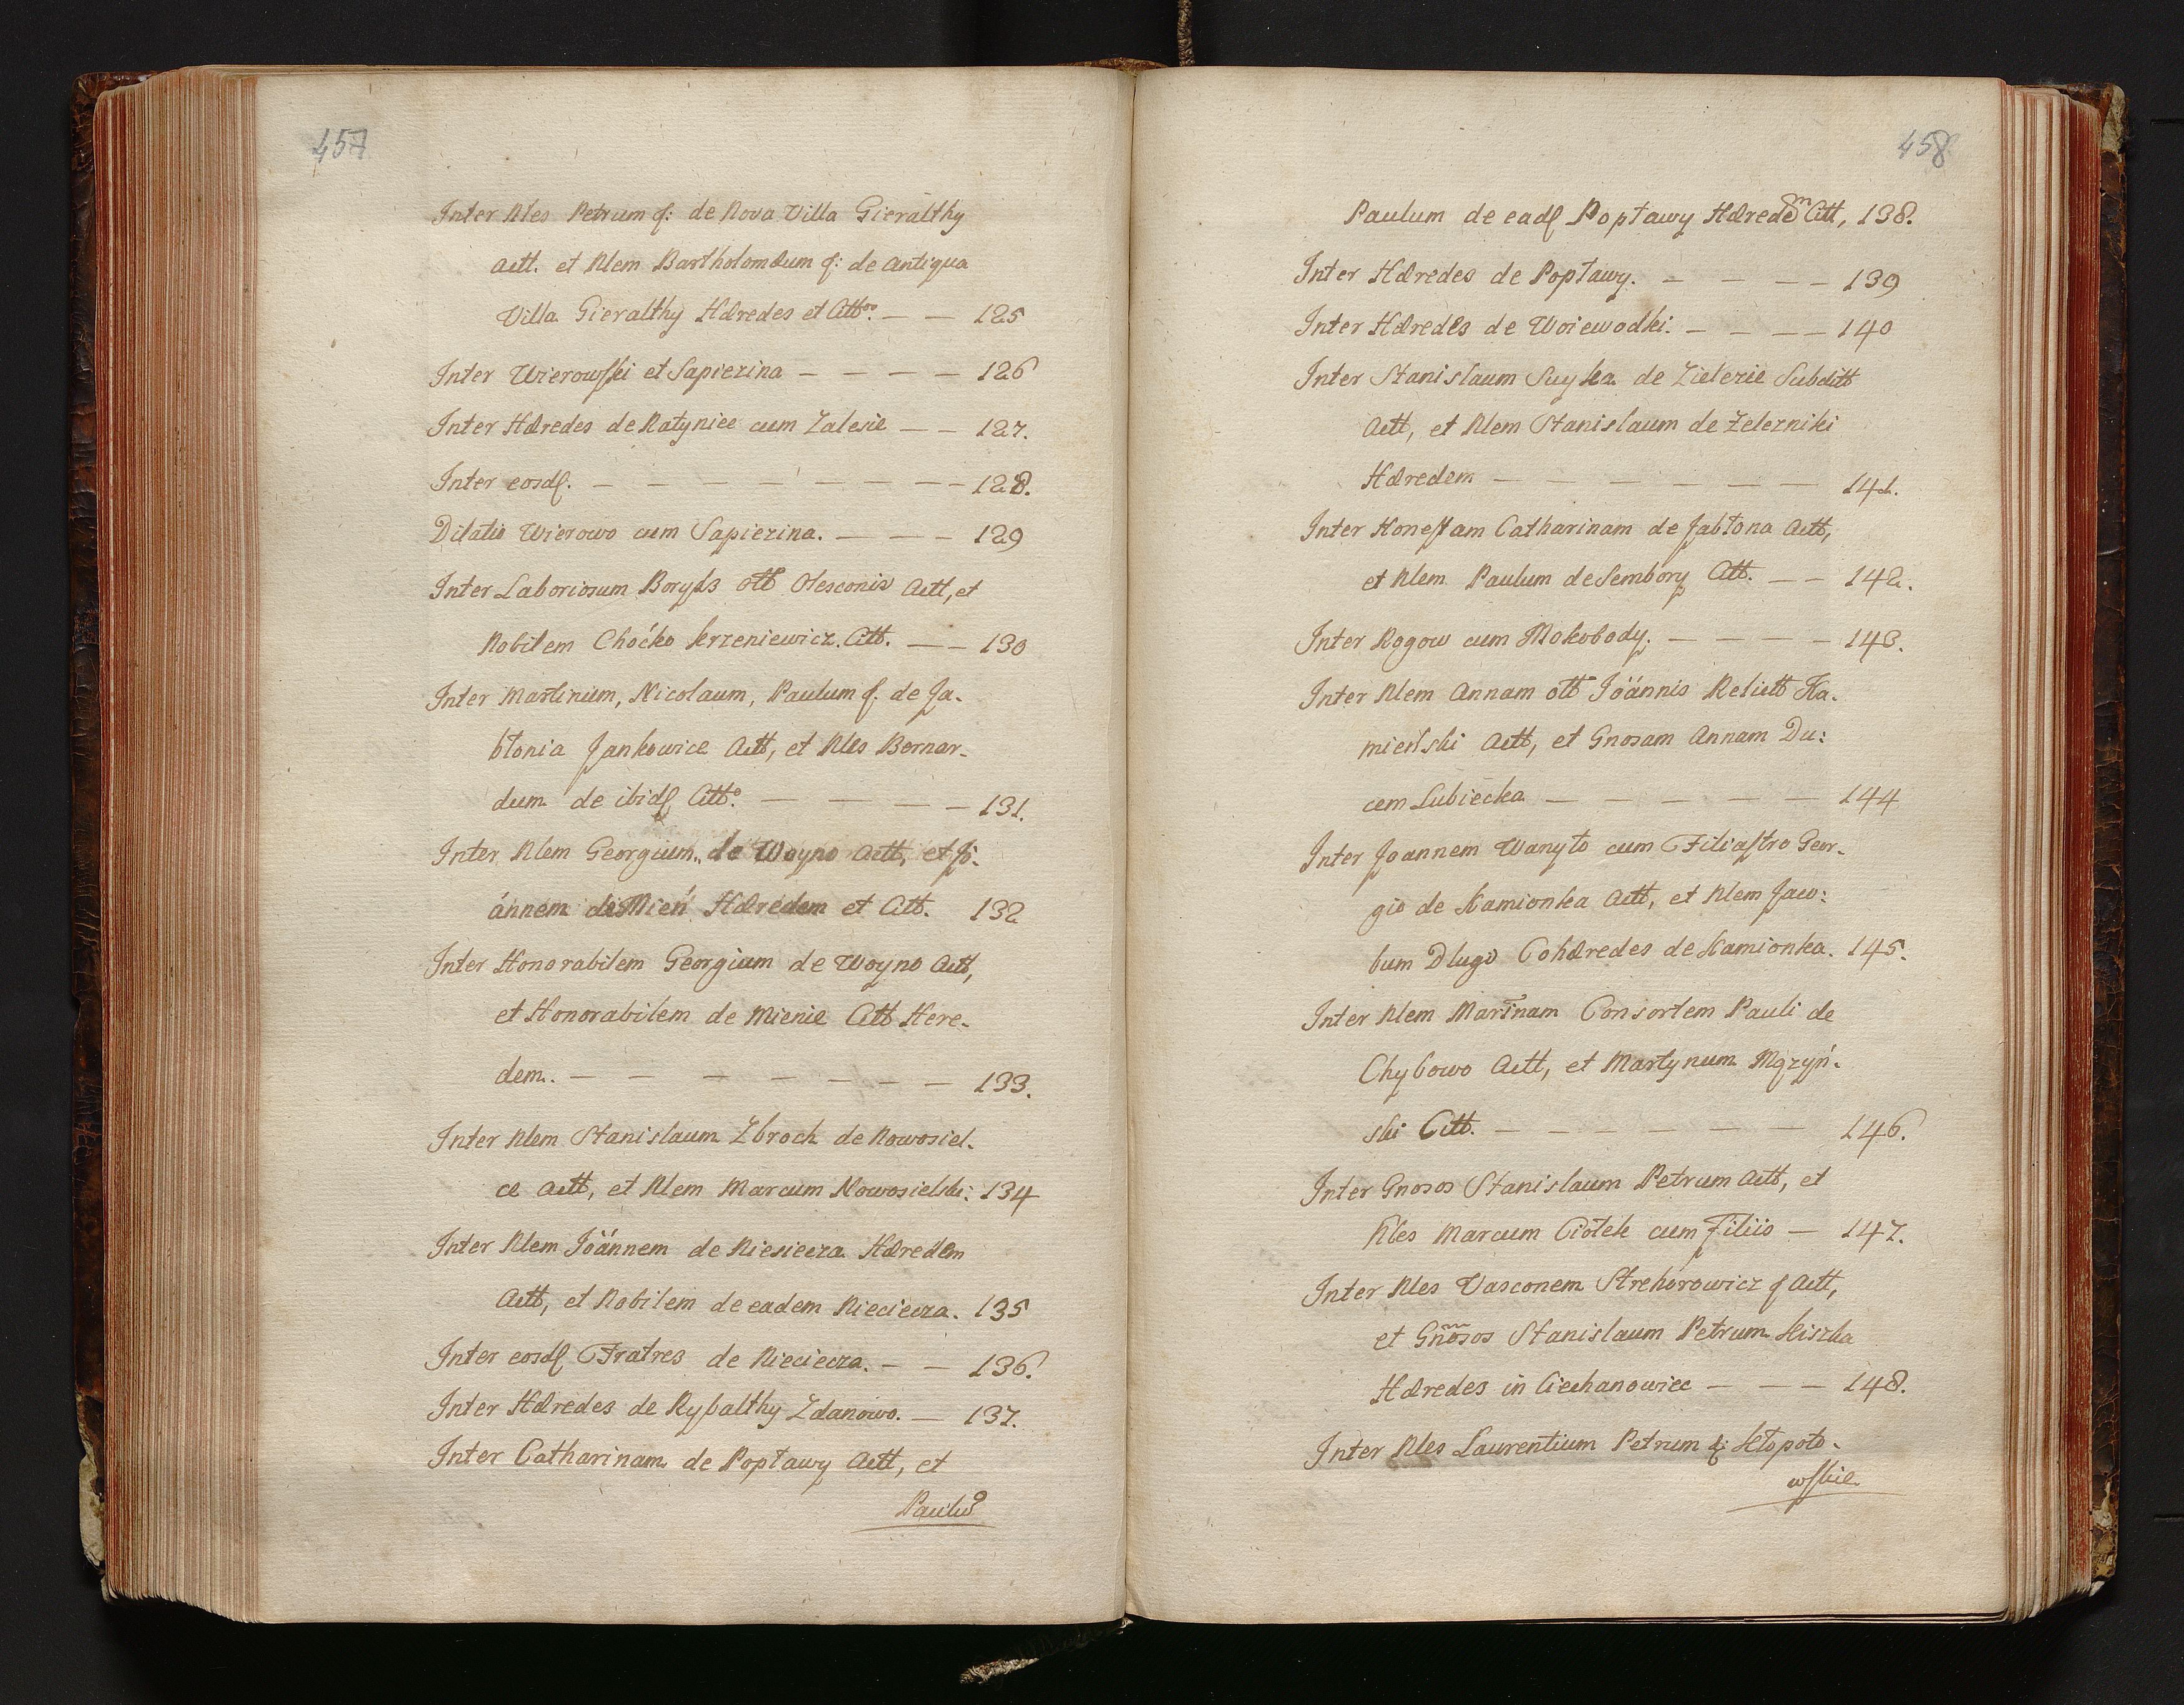 457
Inter Nles Petrum q: de Nova Villa Gieralthy
Actt. et Nlem Bartholomæum q: de antiqua
Villa Gieralthy Hæredes et Cittos. — — 125
Inter Wierowski et Sapiezina — — — — 126
Inter Hæredes de Ratyniec cum Zalesie — — 127.
Inter eosdq. — — — — — — — — 128.
Dilatio Wierowo cum Sapiezina. — — — 129
Inter Laboriosum Boryss ott Olesconis Actt, et
Nobilem Choćko krzeniewicz. Citt. — — 130
Inter Martinum, Nicolaum, Paulum q: de Ja-
błonia Jankowice Actt, et Nles Bernar-
dum de ibidq Citto. — — — — 131.
Inter Nlem Georgium de Woyno Actt, et Jo-
ánnem de Mień Hæredem et Citt. 132
Inter Honorabilem Georgium de Woyno Actt,
et Honorabilem de Mienie Citt Here-
dem. — — — — — — — 133.
Inter Nlem Stanislaum Zbroch de Nowosiel-
ce Actt, et Nlem Marcum Nowosielski: 134
Inter Nlem Joánnem de Niesiecza Hæredem
Actt, et Nobilem de eadem Nieciecza. 135
Inter eosdq Fratres de Nieciecza. — — 136.
Inter Hæredes de Rybalthy Zdanowo. — 137.
Inter Catharinam de Popławy Actt, et
Paulū
458
Paulum de eadq Popławy Hæredem Citt, 138.
Inter Hæredes de Popławy. — — — — 139
Inter Hæredes de Woiewodki. — — — — 140
Inter Stanislaum Suyka de Zielezie Subditt
Actt, et Nlem Stanislaum de Zelezniki
Hæredem — — — — — — 141.
Inter Honestam Catharinam de Jabłona Actt,
et Nlem Paulum de Sembory Citt. — — 142.
Inter Rogow cum Mokobody. — — — — 143.
Inter Nlem Annam ott Joánnis Relictt Ka-
mieński Actt, et Gnosam Annam Du:
cem Lubiecka — — — — — 144
Inter Joannem Wanyto cum Filiastro Geor-
gio de Kamionka Actt, et Nlem Jaco:
bum Dlugo Cohæredes de Kamionka. 145.
Inter Nlem Martnam Consortem Pauli de
Chybowo Actt, et Martynum Mązyń-
ski Citt. — — — — — — 146.
Inter Gnosos Stanislaum Petrum Actt, et
Nles Marcum Ciołek cum Filiis — 147.
Inter Nles Vasconem Strehorowicz q Actt,
et Gnosos Stanislaum Petrum Kiszka
Hæredes in Ciechanowiec — — — 148.
Inter Nles Laurentium Petrum q: Kłopoto-
wskie